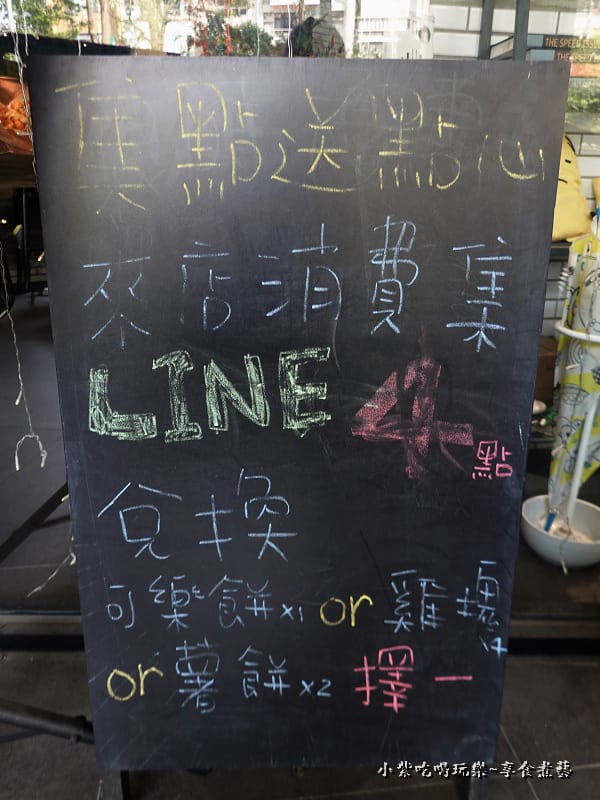 集點送點心
來店消費集
LINE 4點
兌換
可樂餅x1 or 雞塊x4
or 薯餅x2 擇一
THE SPEED
小紫吃喝玩樂~享食煮藝